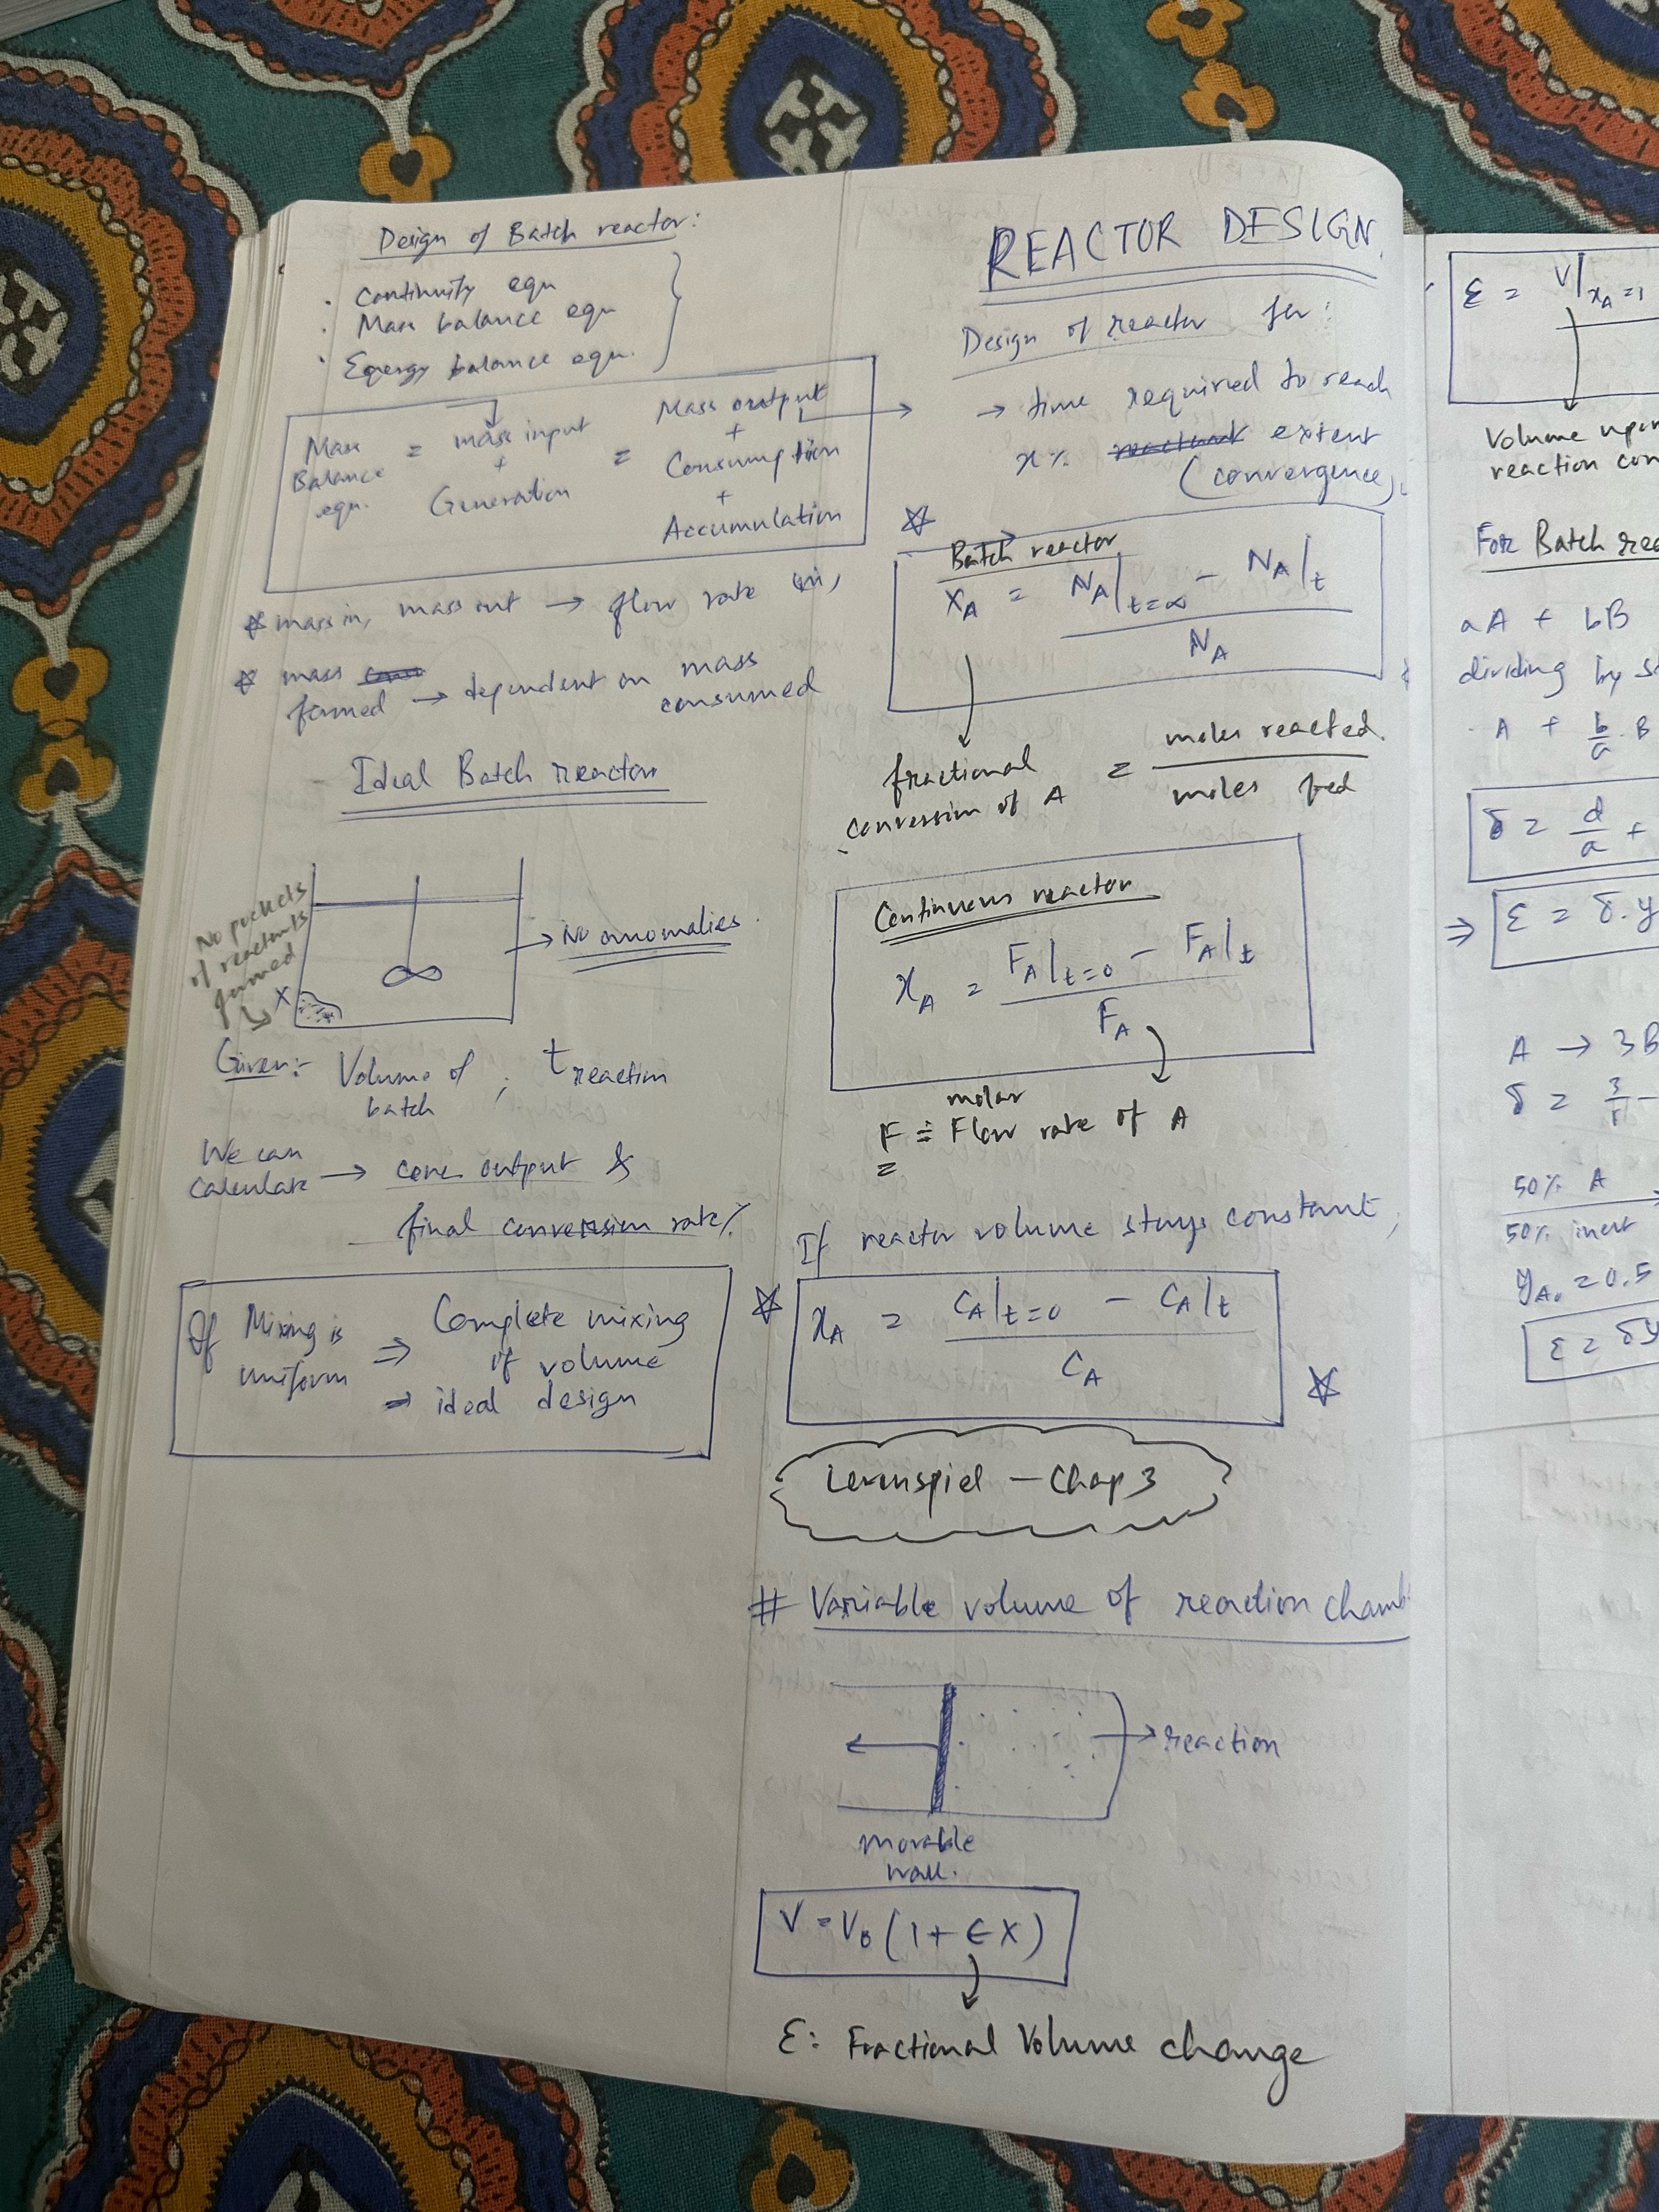 Design of Batch reactor:
· Continuity equ
· Mass balance equ
· Energy balance equ.
Mass Balance equ. = mass input + Generation = Mass output + Consumption + Accumulation
☆ mass in, mass out → flow rate in,
☆ mass formed → dependent on mass consumed
Ideal Batch reactor
No pockets
of reactants
formed
X
→ No anomalies.
Given:- Volume of batch ; t reaction
We can calculate → conc output &
final conversion rate%
If Mixing is uniform ⇒ Complete mixing
of volume
→ ideal design
REACTOR DESIGN
Design of reactor for:
→ time required to reach
x% reactant extent
(convergence).
☆
Batch reactor
X_A = N_A|t=∞ - N_A|t / N_A
fractional conversion of A = moles reacted. / moles fed
Continuous reactor
x_A = F_A|t=0 - F_A|t / F_A
molar
F = Flow rate of A
If reactor volume stays constant,
☆ x_A = C_A|t=0 - C_A|t / C_A ☆
Levenspiel - Chap 3
# Variable volume of reaction chamb
→ reaction
movable
wall.
V = V₀ (1 + ϵX)
ε: Fractional Volume change
ε = V|x_A=1
Volume upon
reaction con
For Batch rea
aA + bB
dividing by s
A + b/a B
δ = d/a +
⇒ ε = δ.y
A → 3B
δ = 3/1 -
50% A
50% inert
y_A₀ = 0.5
ε = δy